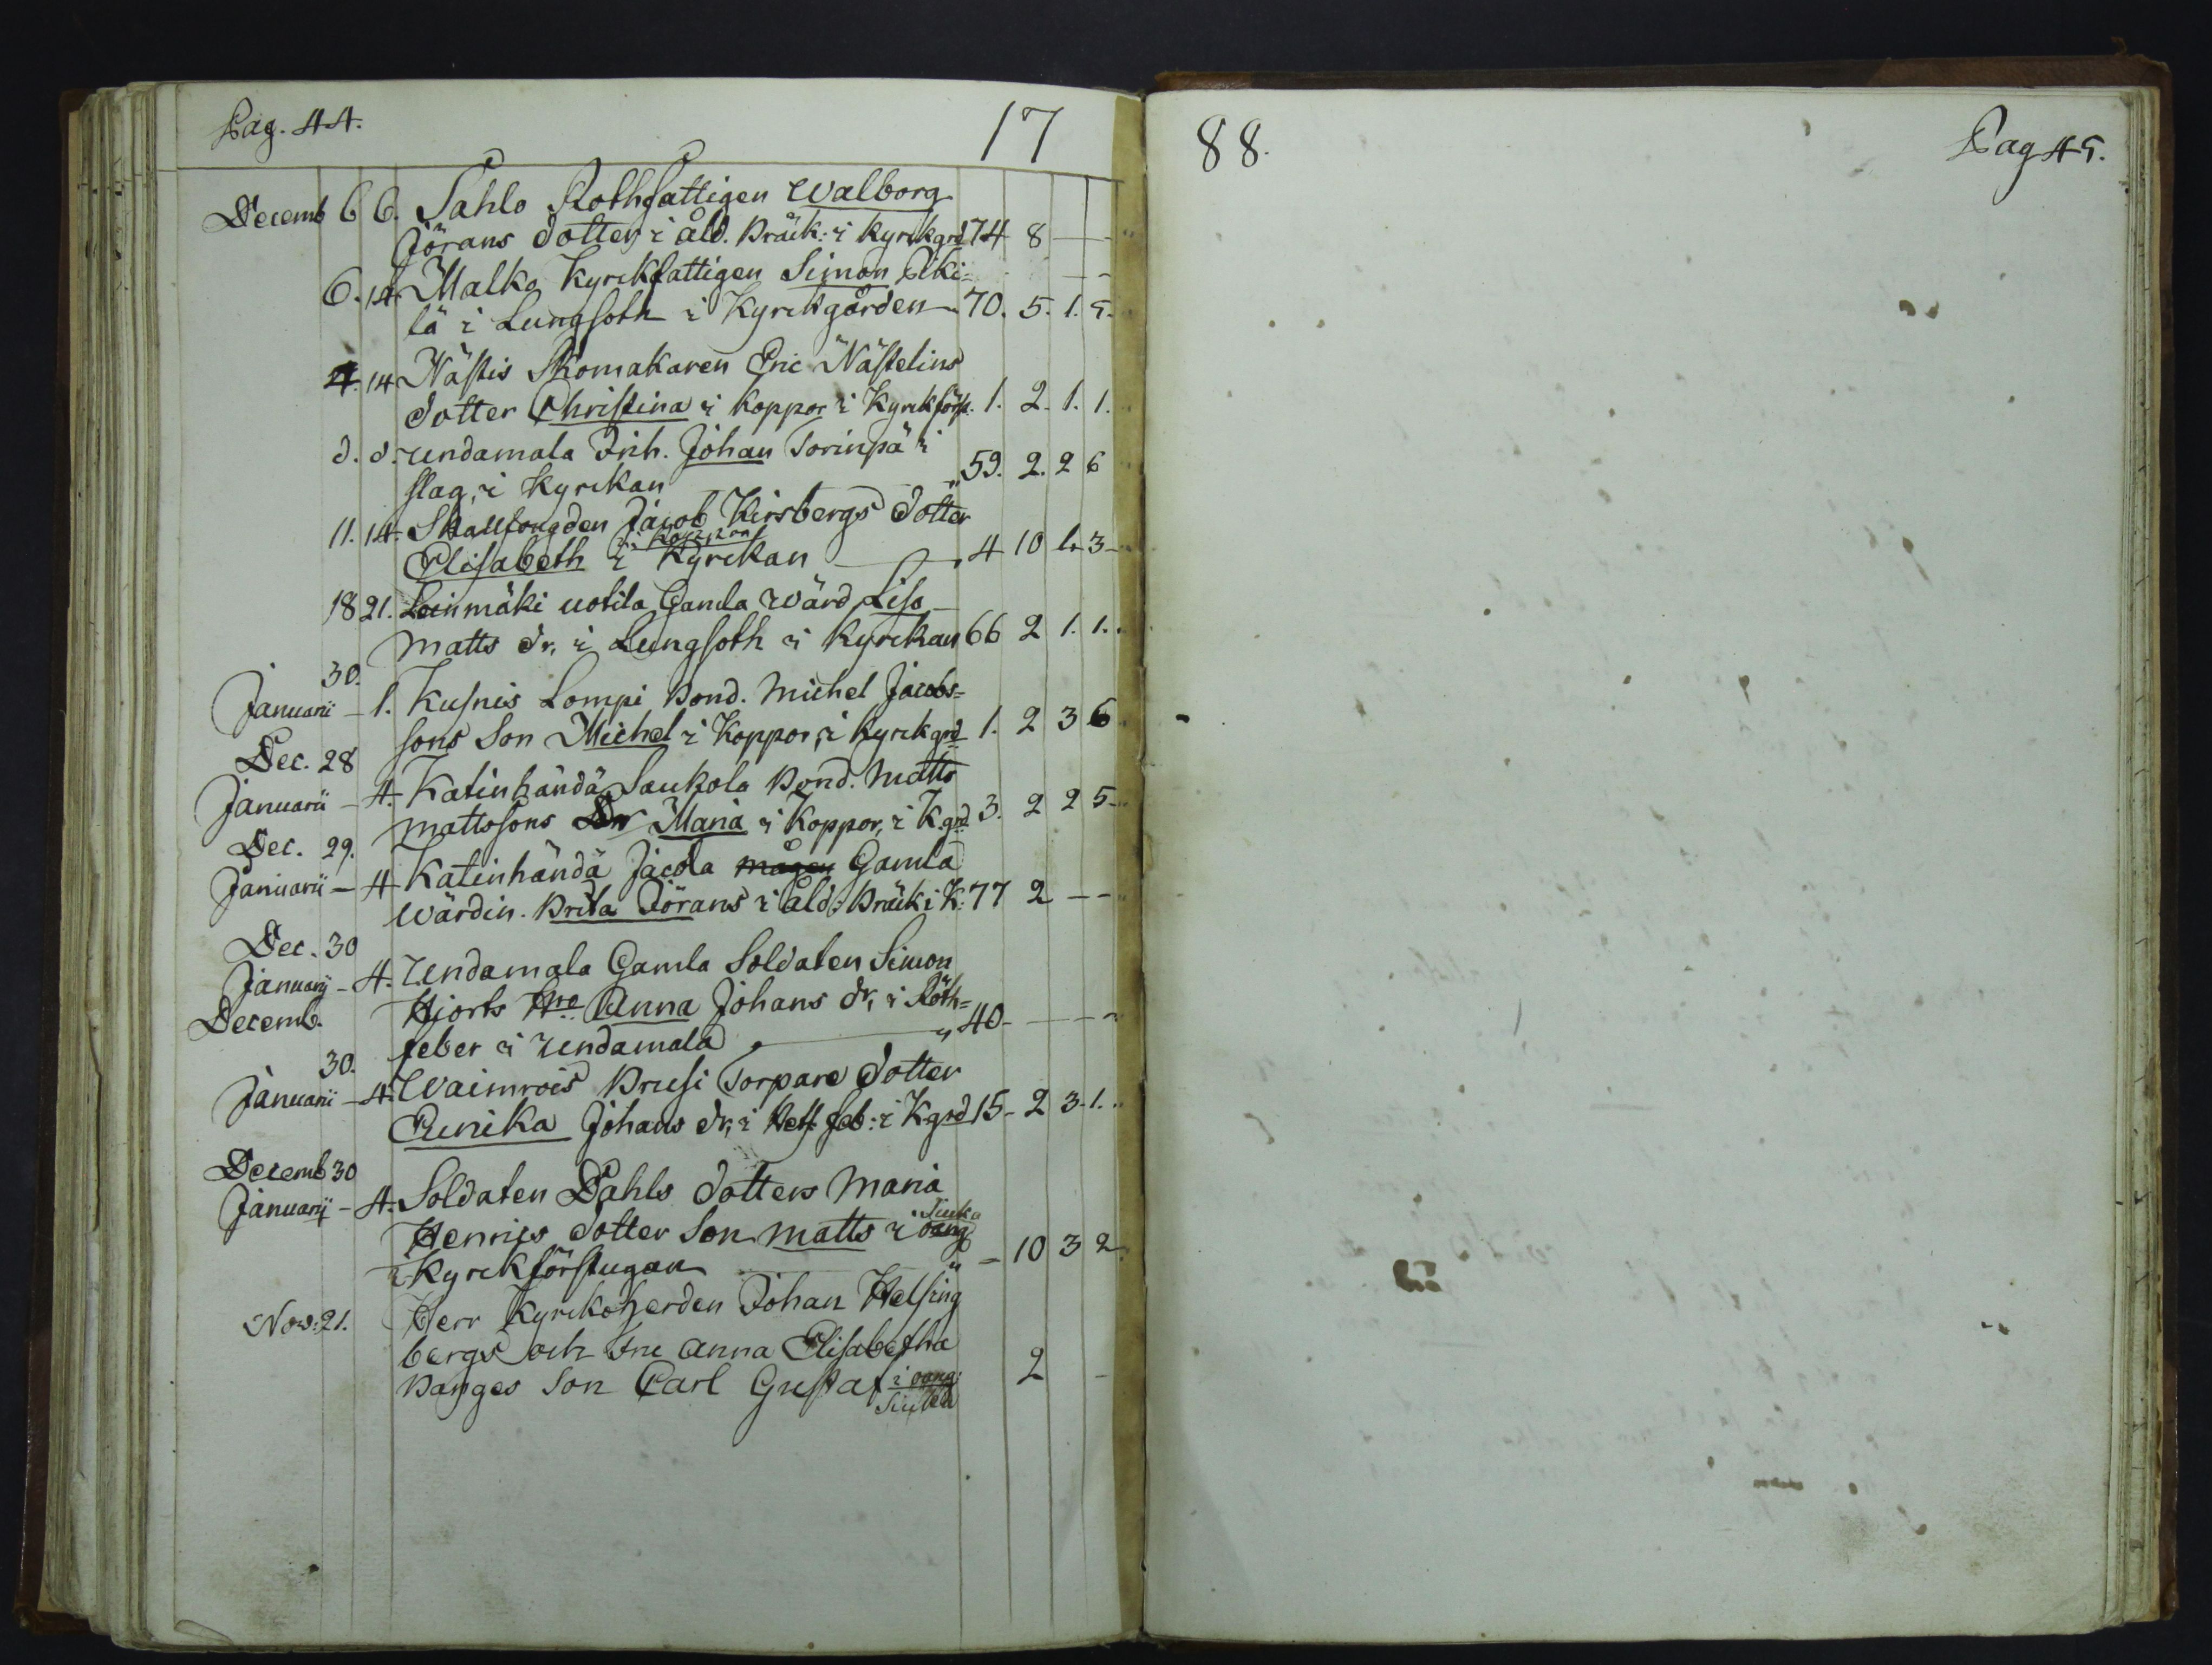 Pag. 44. 17
Decemb 6 6. Sahlo Rothfattigen Walborg
Jörans dotter i åld. Bräck: i kyrkgrd 74 8 — —
6. 14 Malko Kyrckfattigen Simon Piki-
lä i Lungsoth i Kyrckgården 70. 5. 1. 5.
4. 14 Nästis Skomakaren Eric Nästelins
dotter Christina i koppor i Kyrckförst. 1. 2. 1. 1.
d. d. Undamala Inh. Johan Torinpä i
slag, i Kyrckan „ 59. 2. 2 6
11. 14. Skallfougden Jacob Kirsbergs dotter
i Kopppor
Elisabeth i Kyrckan 4 10 1. 3
18 21. Leinmäki uotila Gamla wärd Liso
Matts dr. i Lungsoth i Kyrckan 66 2 1. 1.
30.
Januarii – 1. Kusnis Lompi Bond. Michel Jacobs=
sons Son Michel i Koppor, i Kyrckgrd 1. 2 3 6
Dec. 28
Januarii – 4. Katinhändä Saukola Bond. Matts
Mattssons Dr Maria i Koppor, i K.grd 3. 2 2 5
Dec. 29.
Januarii – 4 Katinhändä Jacola mågen Gamla
Wärdin. Brita Jörans i åld: Bräk i K: 77 2 — —
Dec. 30
Januarij – 4. Undamala Gamla Soldaten Simon
Decemb. Hjorts Hro Anna Johans dr, i Röth=
feber i Undamala „ 40 — — —
30.
Januarii – 4. Waimrois Brusi Torpare dotter
Eunika Johans dr, i Het feb: i Kgrd 15 – 2 3. 1.
Decemb 30
Januarij – 4. Soldaten Dahls dotters Maria
Siuka
Henrics dotter Son Matts i oang
i Kyrckförstugan „ – 10 3 2
Nov: 21. Herr Kyrckoherden Johan Helsing
bergs och Fru Anna Elisabetha
Banges Son Carl Gustaf i oang: 2 –
Siuka
88. Pag 45.